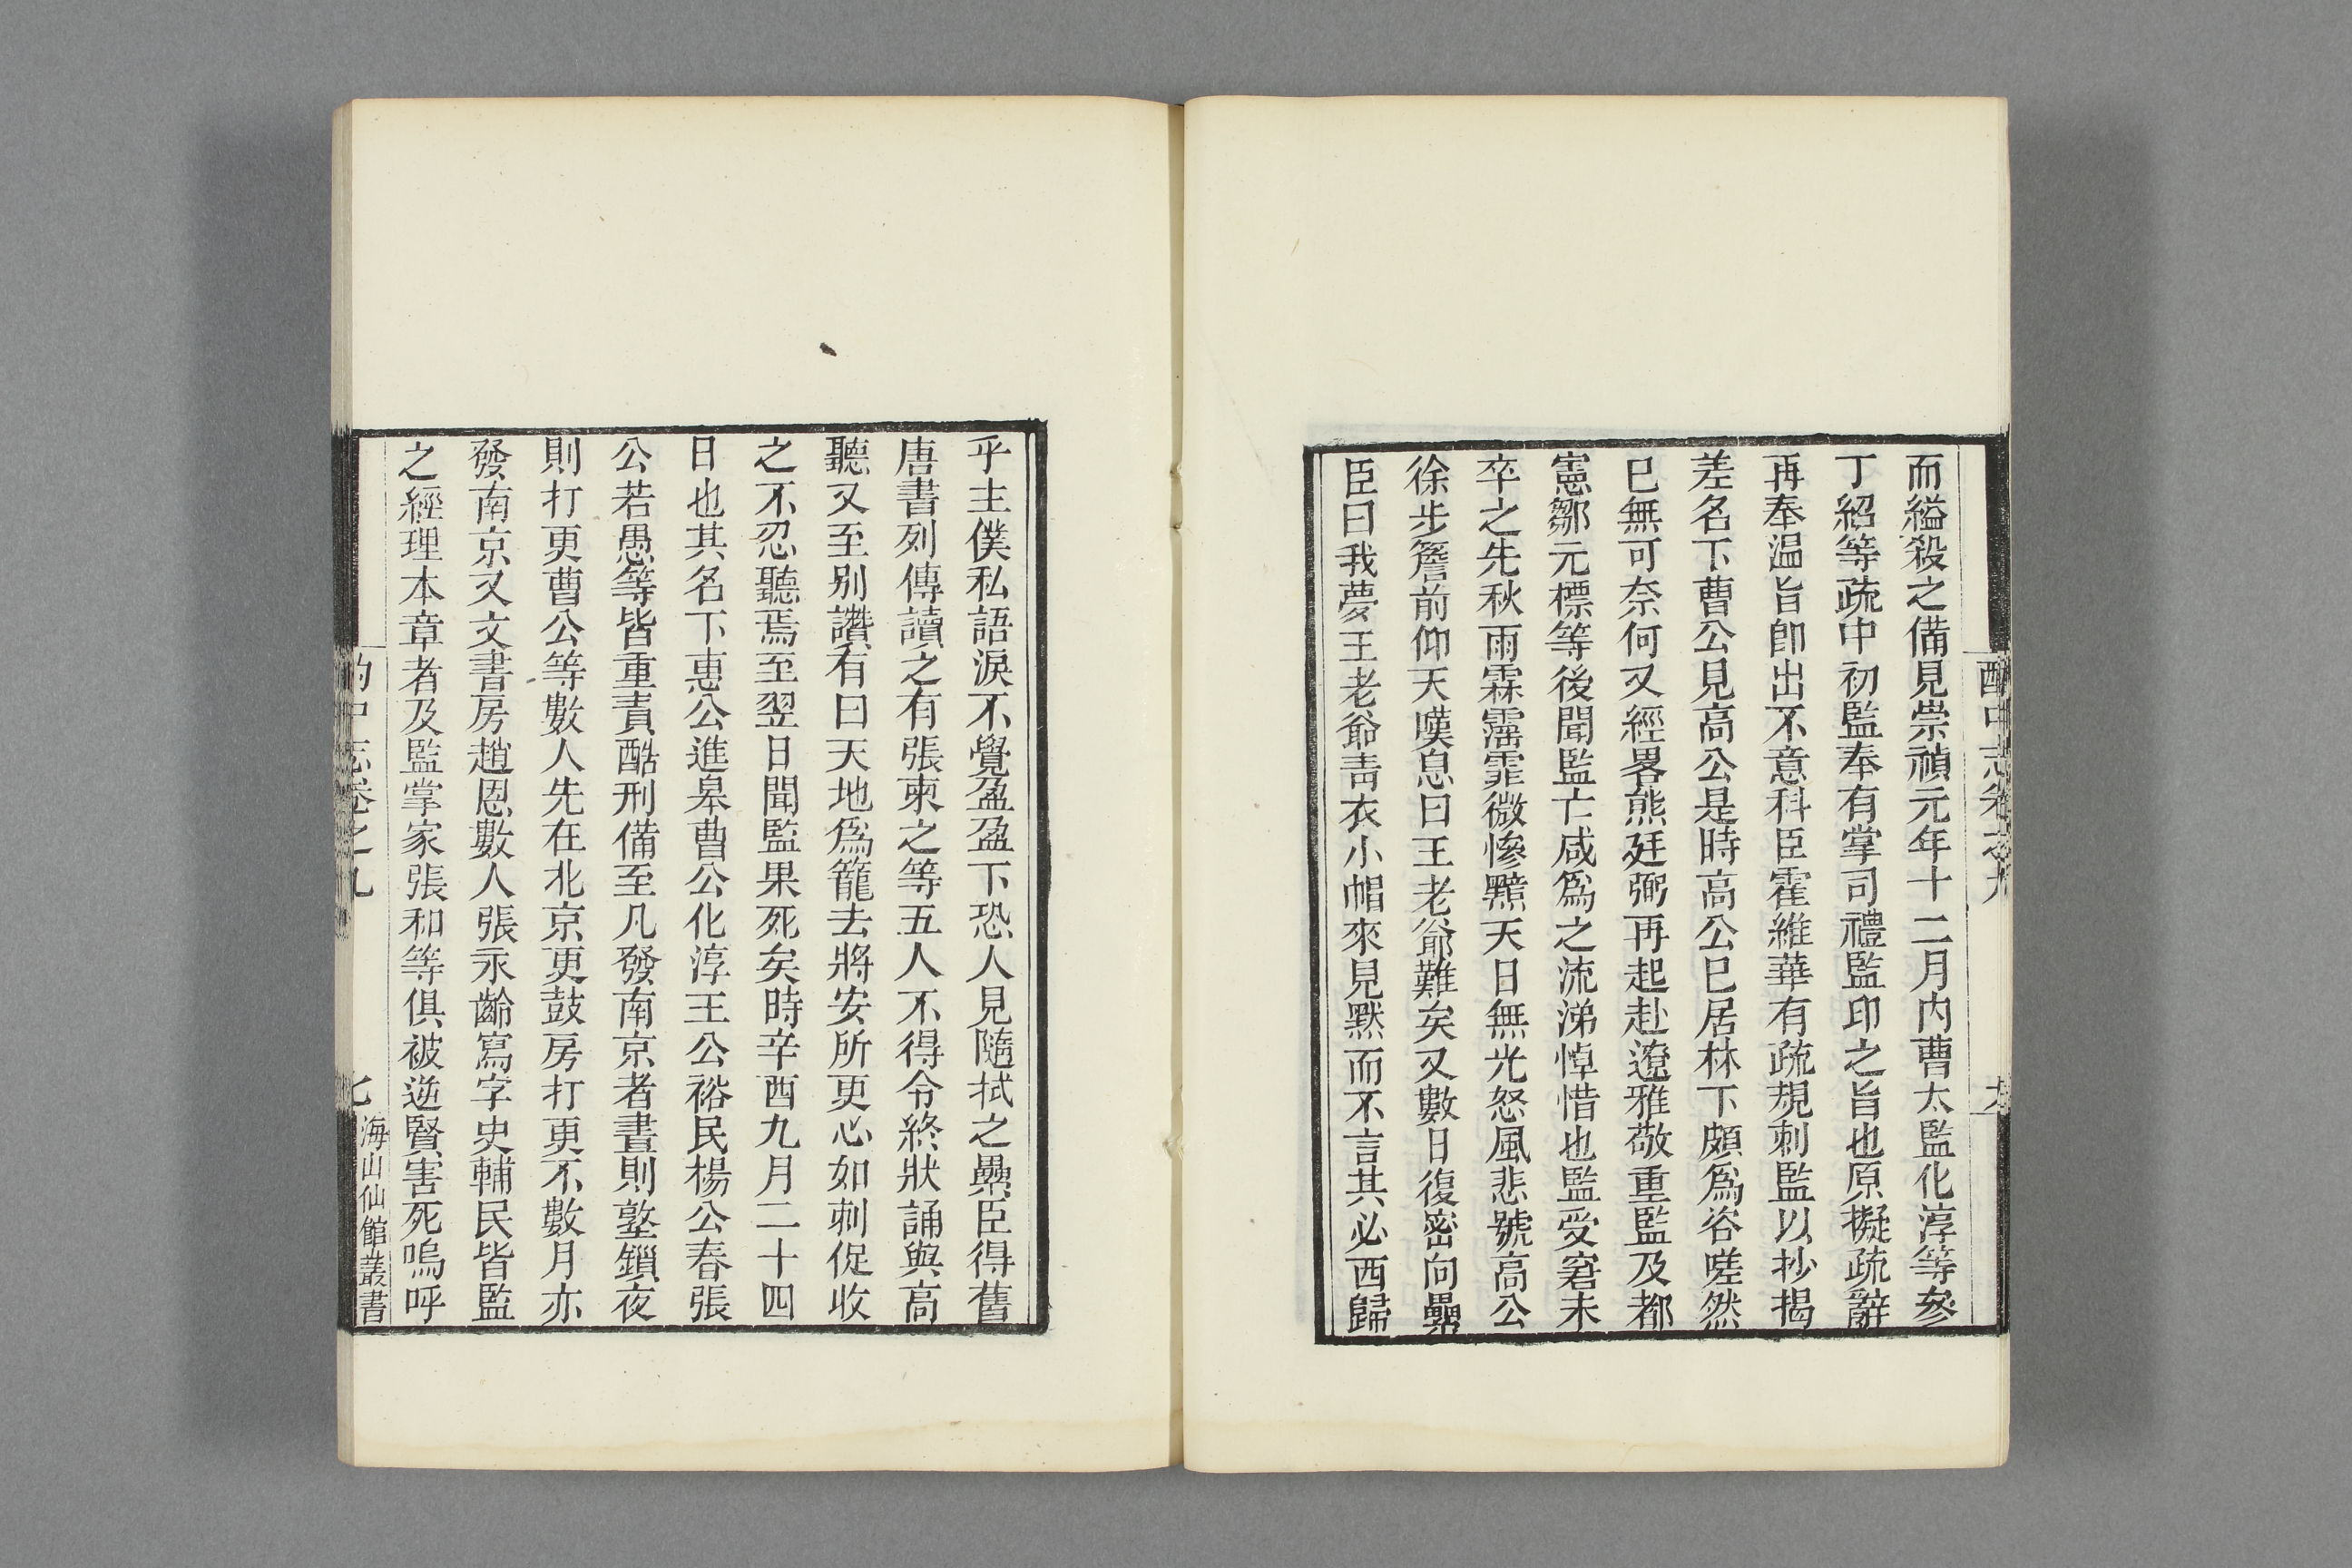 酌中志卷之九
而縊殺之備見崇禎元年十二月内曹太監化淳等參
丁紹等疏中初監奉有掌司禮監印之旨也原擬疏辭
再奉温旨卽出不意科臣霍維華有疏規刺監以抄揭
差名下曹公見高公是時高公已居林下頗爲谷嗟然
已無可奈何又經畧熊廷弼再起赴遼雅敬重監及都
憲鄒元標等後聞監亡咸爲之流涕悼惜也監受窘未
卒之先秋雨霖霪霏微慘黯天日無光怒風悲號高公
徐步簷前仰天嘆息曰王老爺難矣又數日復密向纍
臣曰我夢王老爺靑衣小帽來見默而不言其必西歸
乎主僕私語淚不覺盈盈下恐人見隨拭之纍臣得舊
唐書列傳讀之有張柬之等五人不得令終狀誦與高
聽又至別讚有曰天地爲籠去將安所更心如刺促收
之不忍聽焉至翌日聞監果死矣時辛酉九月二十四
日也其名下惠公進皋曹公化淳王公裕民楊公春張
公若愚等皆重責酷刑備至凡發南京者晝則墪鎖夜
則打更曹公等數人先在北京更鼓房打更不數月亦
發南京又文書房趙恩數人張永齡寫字史輔民皆監
之經理本章者及監掌家張和等俱被逆賢害死嗚呼
酌中志卷之九
七
海山仙館叢書